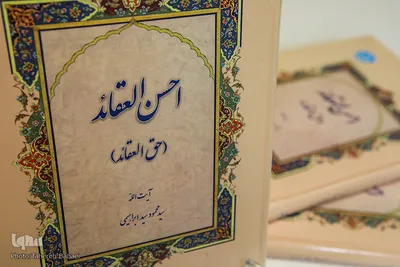 احسن العقائد
(حق العقائد)
آیت الله
سید محمود سید ابراهیمی
Photo:Tahereh Babaei